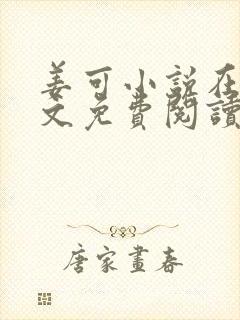 姜可小说在
文免费閱讀
唐家畫春